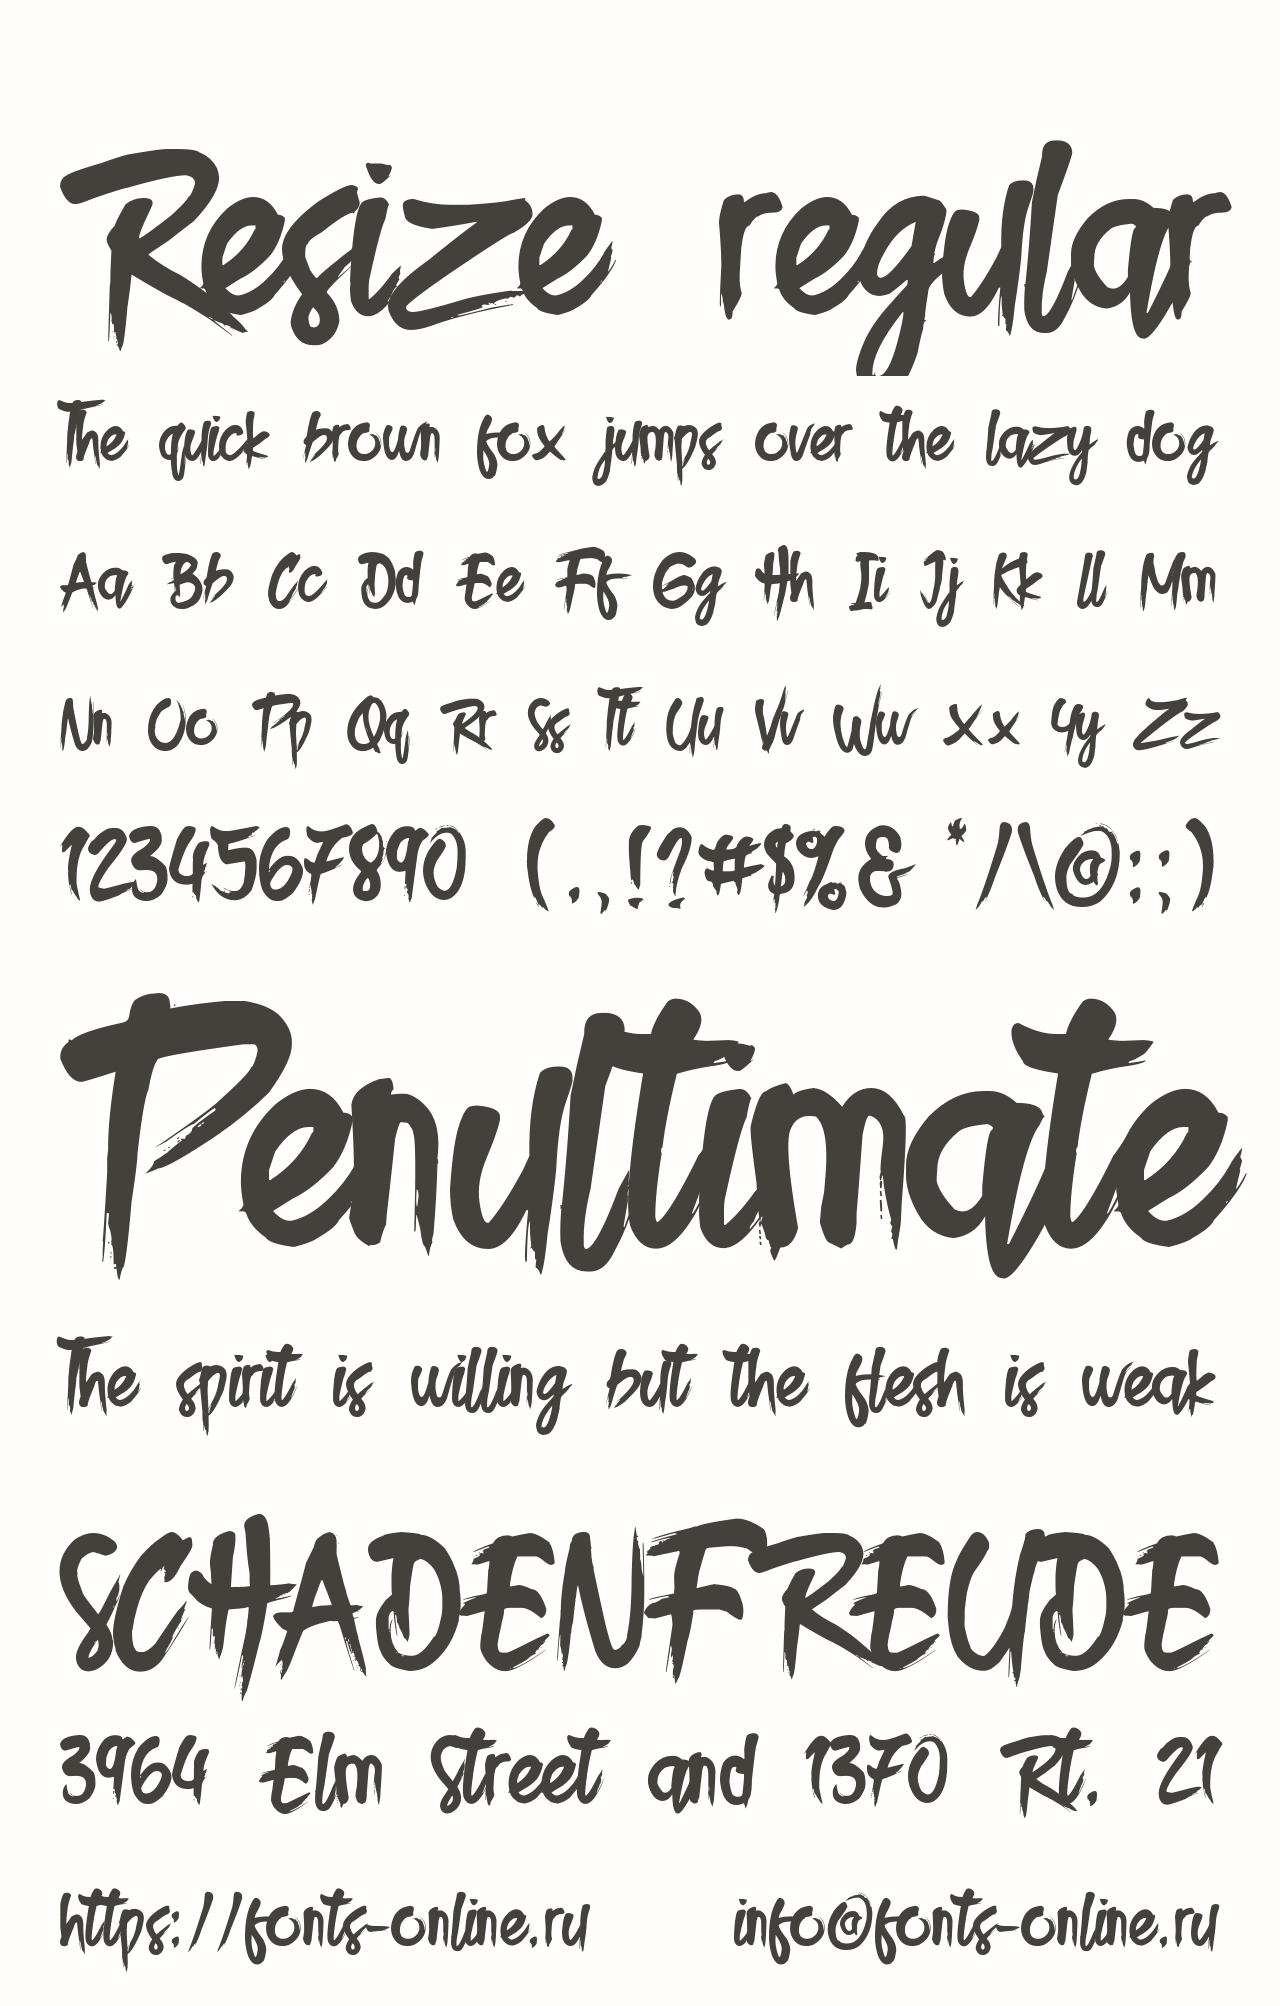 Resize regular
The quick brown fox jumps over the lazy dog
Aa Bb Cc Dd Ee Ff Gg Hh Ii Jj Kk Ll Mm
Nn Oo Pp Qq Rr Ss Tt Uu Vv Ww Xx Yy Zz
1234567890 (.,!?#$%& */\@:;)
Penultimate
The spirit is willing but the flesh is weak
SCHADENFREUDE
3964 Elm Street and 1370 Rt. 21
https://fonts-online.ru info@fonts-online.ru